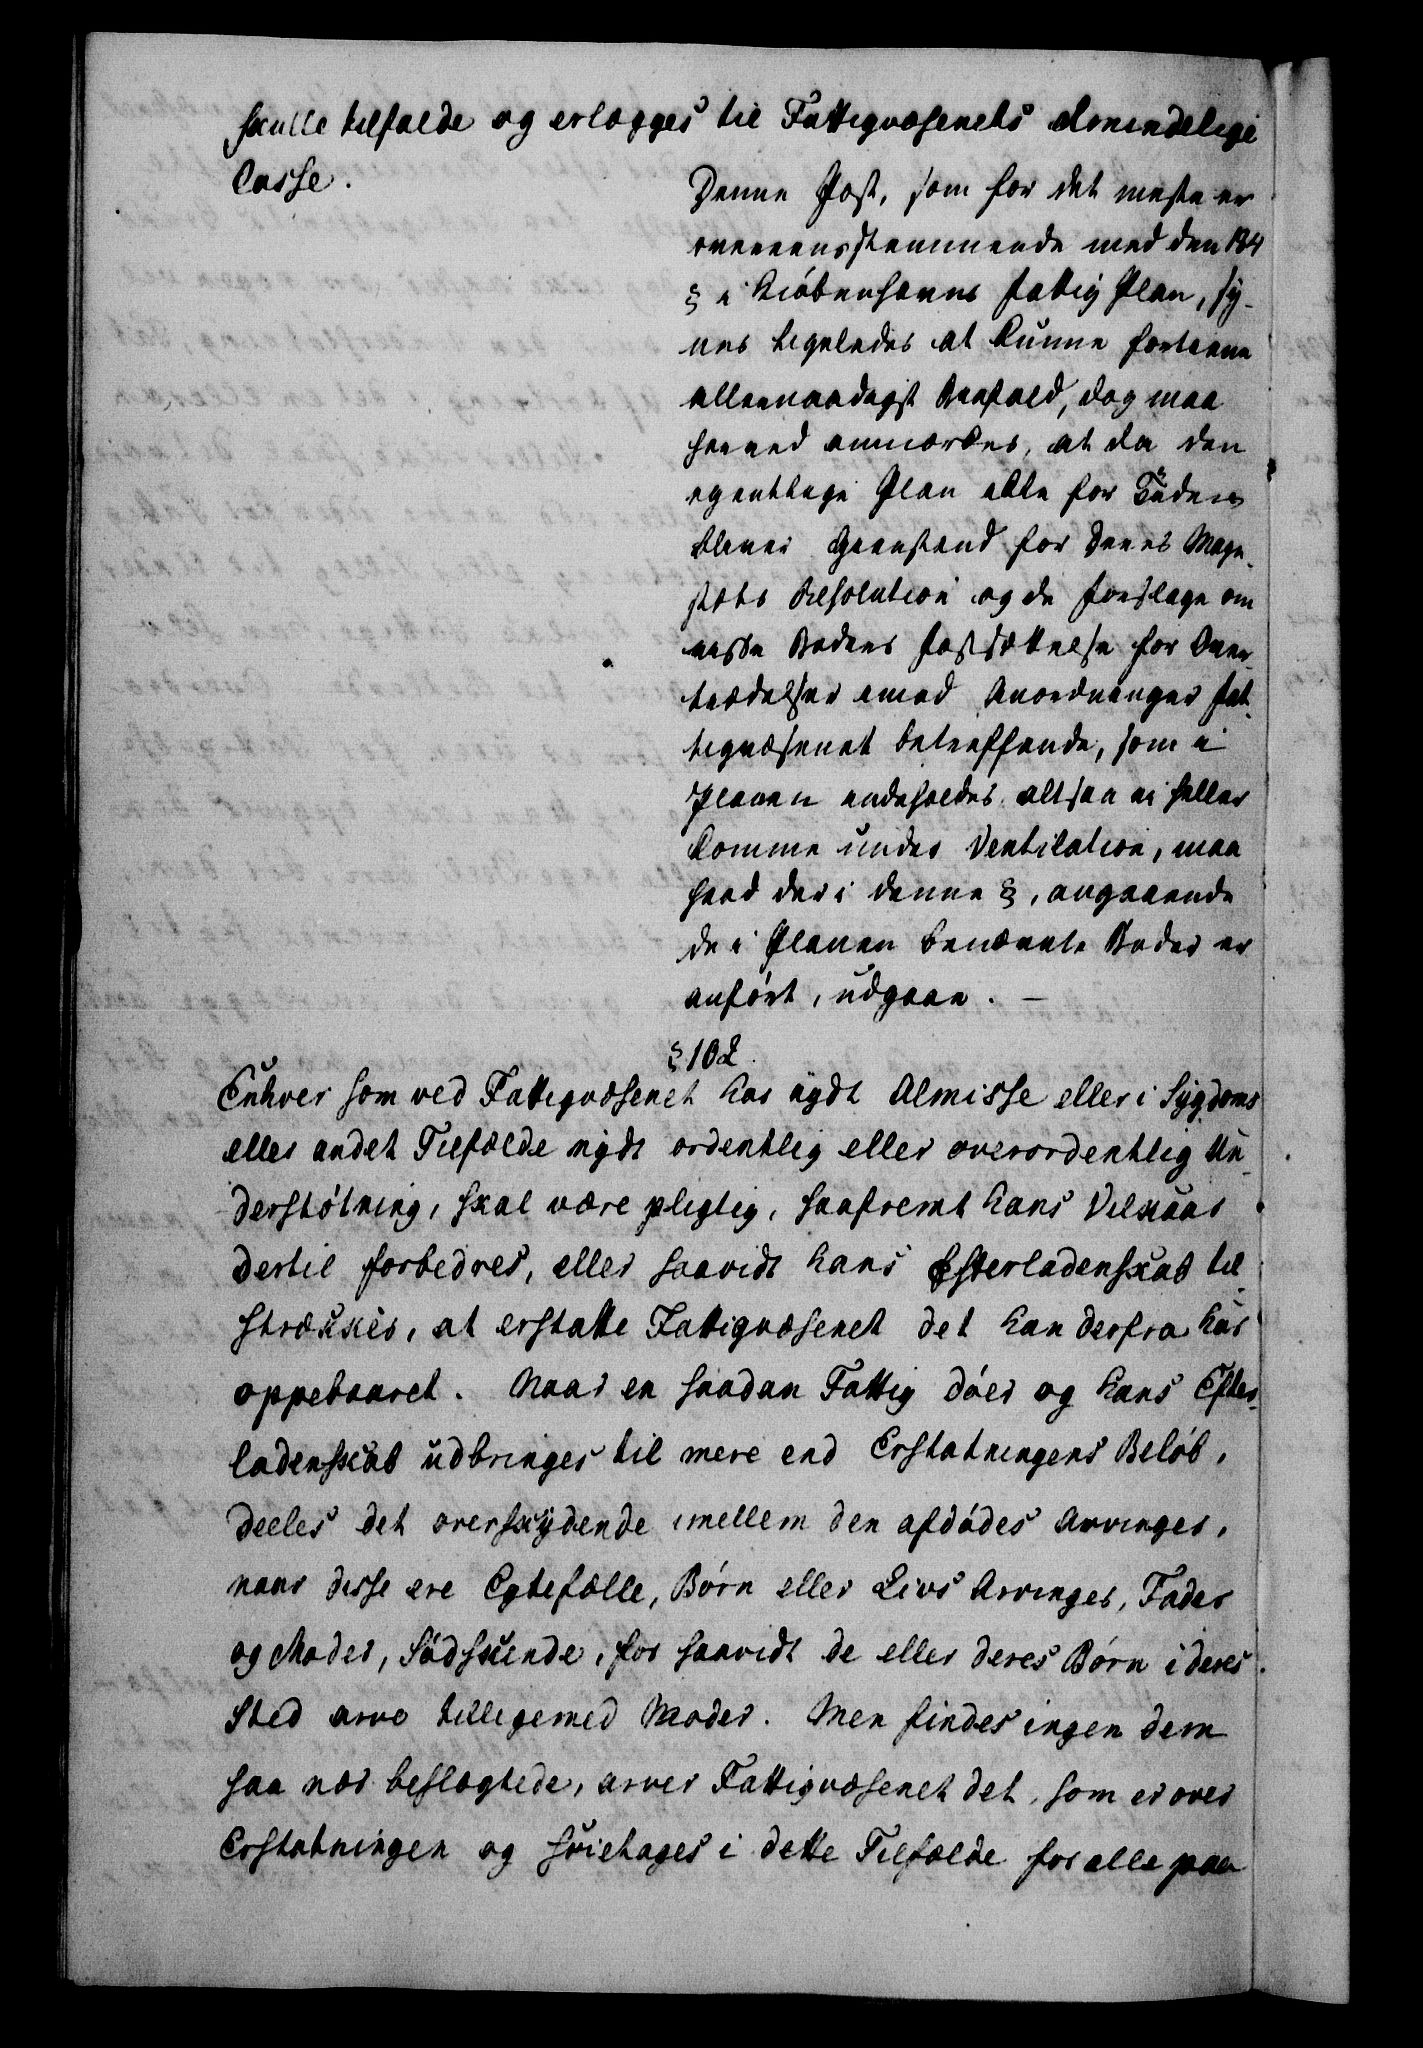 skulle tilfalde og erlægges til Fattigvæsenets almindelige
Casse.
Denne Post, som for det meste er
overeensstemmende med den 184
§ i Kiøbenhavns Fattig Plan, sy-
nes ligeledes at kunne fortiene
allernaadigst Bifald, dog maa
herved anmærkes, at da den
egentlige Plan ikke for Tiden
bliver Gienstand for Deres Maje-
stæts Resolution og de Forslage om
visse Bøders Fastsættelse for Over-
trædelser imod Anordninger Fat-
tigvæsenet betreffende, som i
Planen indeholdes altsaa ei heller
komme under Ventilation, maa
hvad der i denne §, angaaende
de i Planen benævnte Bøder er
anført, udgaae. —
§ 102.
Enhver som ved Fattigvæsenet har nydt Almisse eller i Sygdoms
eller andet Tilfælde nydt ordentlig eller overordentlig Un-
derstøtning, skal være pligtig, saafremt hans Vilkaar
dertil forbedres, eller saavidt hans Efterladenskab til-
strækker, at erstatte Fattigvæsenet det han derfra har
oppebaaret. Naar en saadan Fattig døer og hans Efter-
ladenskab udbringes til mere end Erstatningens Beløb,
deeles det overskydende imellem den afdødes Arvinger,
naar disse ere Egtefælle, Børn eller Livs Arvinger, Fader
og Moder, Sødskende, for saavidt de eller deres Børn i deres
Sted arve tilligemed Moder. Men findes ingen dem
saa nær beslægtede, arver Fattigvæsenet det, som er over
Erstatningen og frietages i dette Tilfælde for alle paa